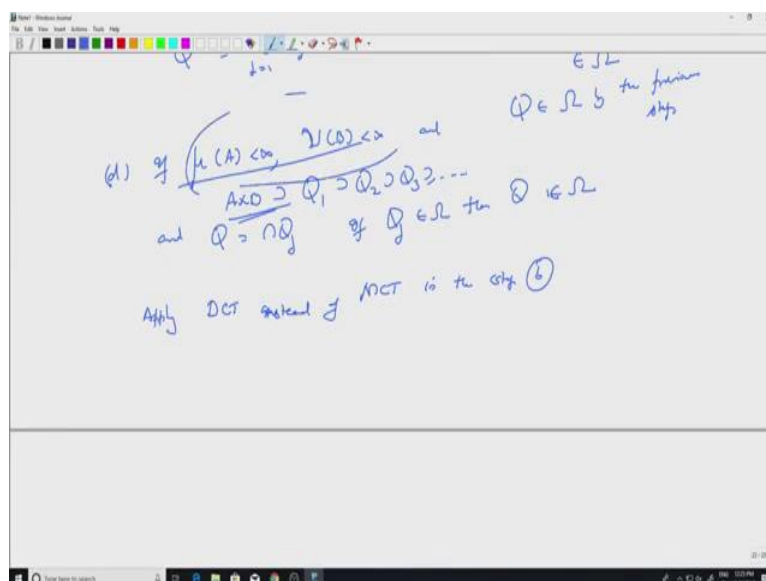 Note1 - Windows Journal
File Edit View Insert Actions Tools Help
Q =
j=1
∈ Ω
Q ∈ Ω b the previous
step
(d) If μ(A) < ∞, ν(B) < ∞ and
A×B ⊃ Q₁ ⊃ Q₂ ⊃ Q₃ ⊃ ...
and Q = ∩Qj If Qj ∈ Ω then Q ∈ Ω
Apply DCT instead of MCT in the step (b)
Type here to search
ENG 12:23 PM